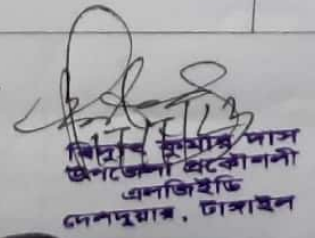 কুমার দাস
উপজেলা প্রকৌশলী
এলজিইডি
দেলদুয়ার, টাঙ্গাইল